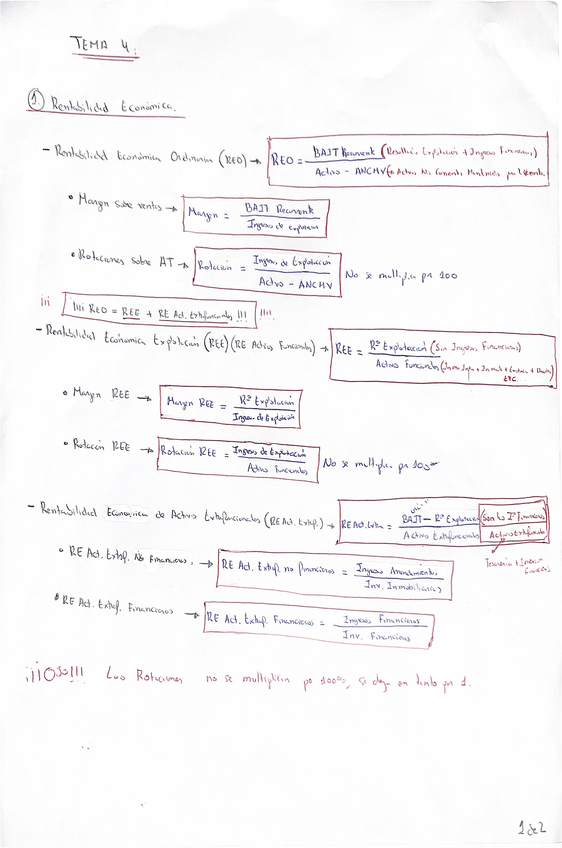 TEMA 4:
1. Rentabilidad Económica.
- Rentabilidad Económica Ordinaria (REO) → REO = BAIT Recurrente (Resultado Explotación + Ingresos Financieros)
Activo - ANCMV (o Activos No Corrientes Mantenidos para la Venta)
• Margen sobre ventas → Margen = BAIT Recurrente
Ingresos de explotación
• Rotaciones sobre AT → Rotación = Ingresos de Explotación
Activo - ANCMV
No se multiplica por 100
¡¡¡ ¡¡¡¡ REO = REE + RE Act. Extrafuncionales !!! !!!!
- Rentabilidad Económica Explotación (REE) (RE Activos Funcionales) → REE = Rº Explotación (Sin Ingresos Financieros)
Activos Funcionales
ETC.
• Margen REE → Margen REE = Rº Explotación
Ingresos de Explotación
• Rotación REE → Rotación REE = Ingresos de Explotación
Activos Funcionales
No se multiplica por 100
- Rentabilidad Económica de Activos Extrafuncionales (RE Act. Extraf.) → RE Act. Extra = BAIT - Rº Explotación (Son los Iº Financieros)
Activos Extrafuncionales
Tesorería + Inversión financieras
• RE Act. Extraf. No Financieros. → RE Act. Extraf. no financieros = Ingresos Arrendamientos
Inv. Inmobiliarias
• RE Act. Extraf. Financieros → RE Act. Extraf. Financieros = Ingresos Financieros
Inv. Financieras
¡¡¡OJO!!! Las Rotaciones no se multiplican po 100%, se deja en tanto por 1.
1 de 2